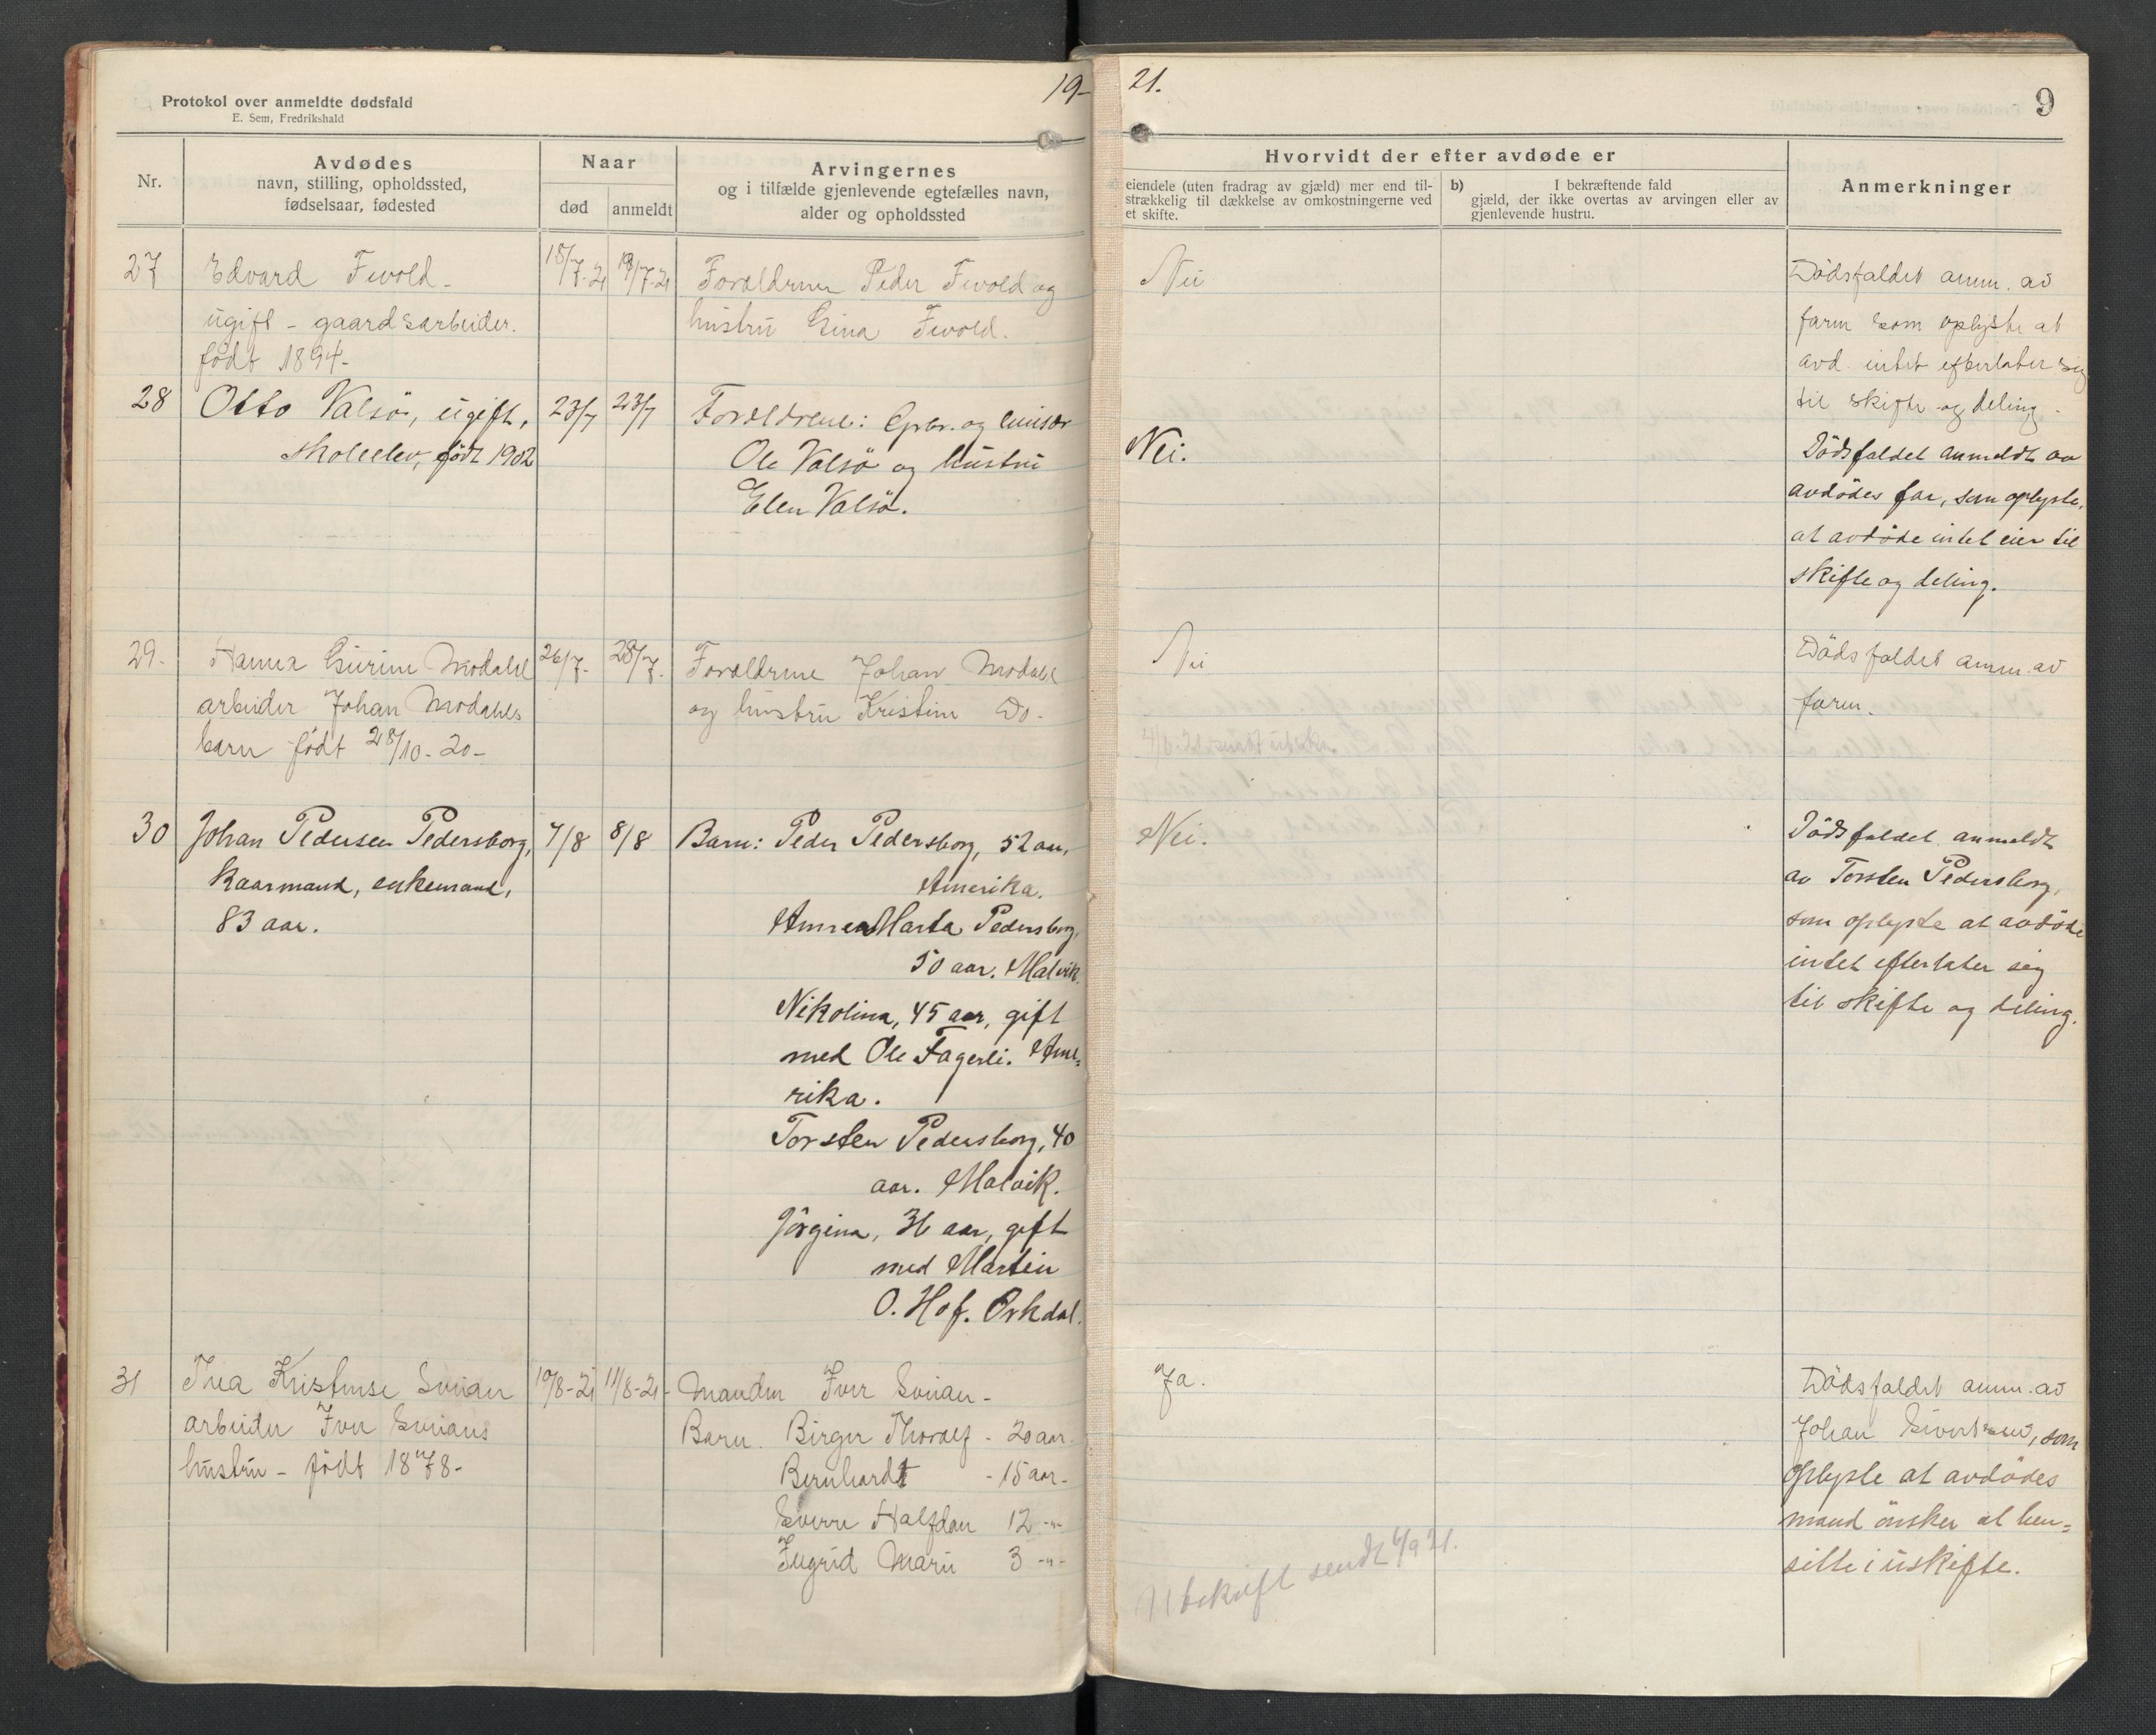 19-
21.
9
Protokol over anmeldte dødsfald
E. Sem, Fredrikshald
Nr.
Avdødes
navn, stilling, opholdssted,
fødselsaar, fødested
Naar
død
anmeldt
Arvingernes
og i tilfælde gjenlevende egtefælles navn,
alder og opholdssted
Hvorvidt der efter avdøde er
eiendele (uten fradrag av gjæld) mer end til-
strækkelig til dækkelse av omkostningerne ved
et skifte.
b) I bekræftende fald
gjæld, der ikke overtas av arvingen eller av
gjenlevende hustru.
Anmerkninger
27
Edvard Fevold -
ugift - gaardsarbeider.
født 1894-
18/7-21
19/7-21
Forældrene Peder Fevold og
hustru Gina Fevold.
Nei
Dødsfaldet anm. av
faren som oplyste at
avd. intet efterlater sig
til skifte og deling.
28
Otto Valsö, ugift,
skoleelev, født 1902
23/7
23/7
Forældrene: Gprbr. og
Ole Valsö og hustru
Elen Valsö.
Nei.
Dödsfaldet anmeldt av
avdödes far, som oplyste,
at avdöde intet eier til
skifte og deling.
29.
Modahl
arbeider Johan Modahls
barn født 28/10-20-
26/7-
28/7.
Forældrene Johan Modahl
og hustru Kristine Do-
Nei
Dødsfaldet anm. av
faren.
4/8-21 sendt utskr.
30
Johan Pedersen Pedersborg,
kaarmand, enkemand,
83 aar.
7/8
8/8
Barn: Peder Pedersborg, 52 aar,
Amerika.
Marta Pedersborg,
50 aar. Malvik.
Nikolina, 45 aar, gift
med Ole Fagerli. Ame=
rika.
Torsten Pedersborg, 40
aar. Malvik.
Jörgina, 36 aar, gift
med Martin
O. Hof. Orkdal.
Nei.
Dödsfaldet anmeldt
av Torsten Pedersborg,
som oplyste at avdöde
intet efterlater sig
til skifte og deling.
31
Thea Kristense Svean
arbeider Iver Sveans
hustru - født 1878-
10/8-21
11/8-21-
Manden Iver Svean -
Barn. Birger Thoralf - 20 aar.
Bernhardt - 15 aar-
Sverre Halfdan 12 -"-
Ingrid Marie 3 -"-
Ja.
Utskrift sendt 6/9 21.
Dødsfaldet anm. av
Johan Sivertsen, som
oplyste at avdödes
mand önsker at hen=
sitte i uskifte.